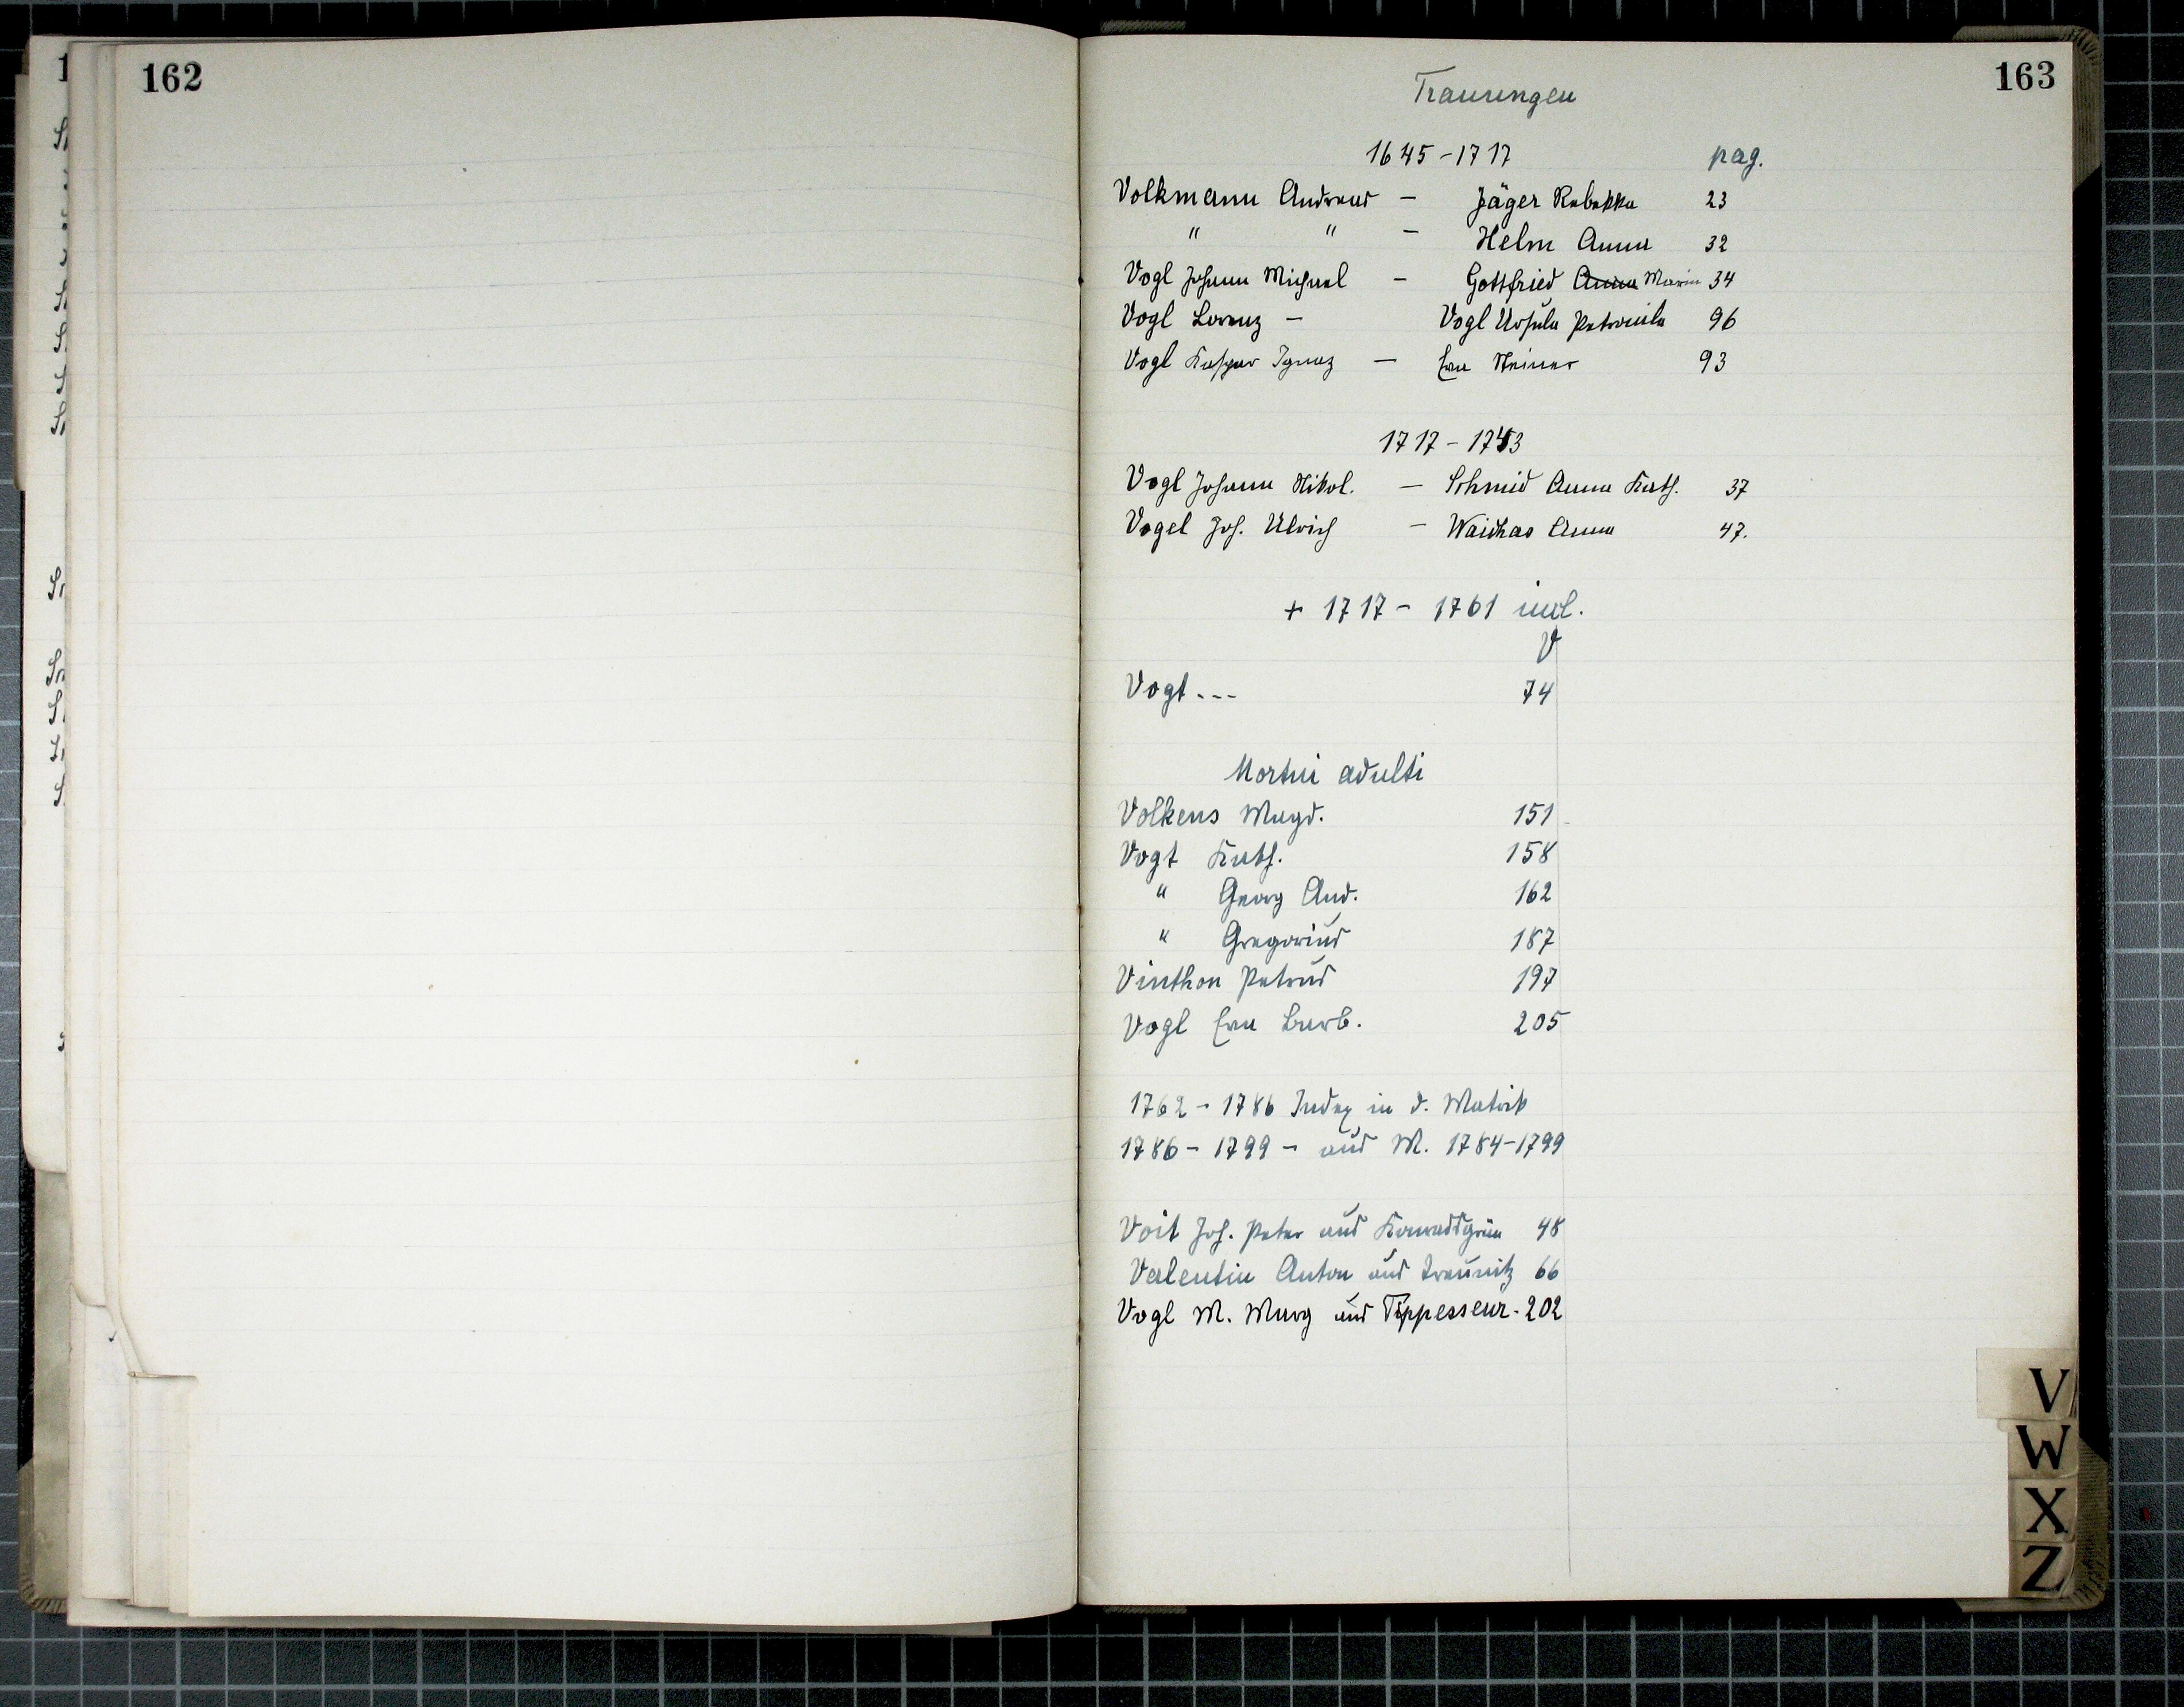 162
163
Trauungen
1645-1717 pag.
Volkmann Andreas - Jäger Rebekka 23
" " - Helm Anna 32
Vogl Johann Michael - Gottfried Anna Maria 34
Vogl Lorenz - Vogl Ursula Petronila 96
Vogl Kaspar Ignaz - Eva Steiner 93
1717-1743
Vogl Johann Nikol. - Schmid Anna Kath. 37
Vogel Joh. Ulrich - Waichas Anna 47.
+ 1717 - 1761 incl.
V
Vogt --- 74
Mortui adulti
Volkens Magd. 151
Vogt Kath. 158
" Georg And. 162
" Gregorius 187
Vinthon Petrus 197
Vogl Eva Barb. 205
1762 - 1786 Index in d. Matrik
1786 - 1799 - aus M. 1784-1799
Voit Joh. Peter aus Konradsgrün 48
Valentin Anton aus Traunitz 66
Vogl M. Marg aus Tippesseur - 202
V
W
X
Z